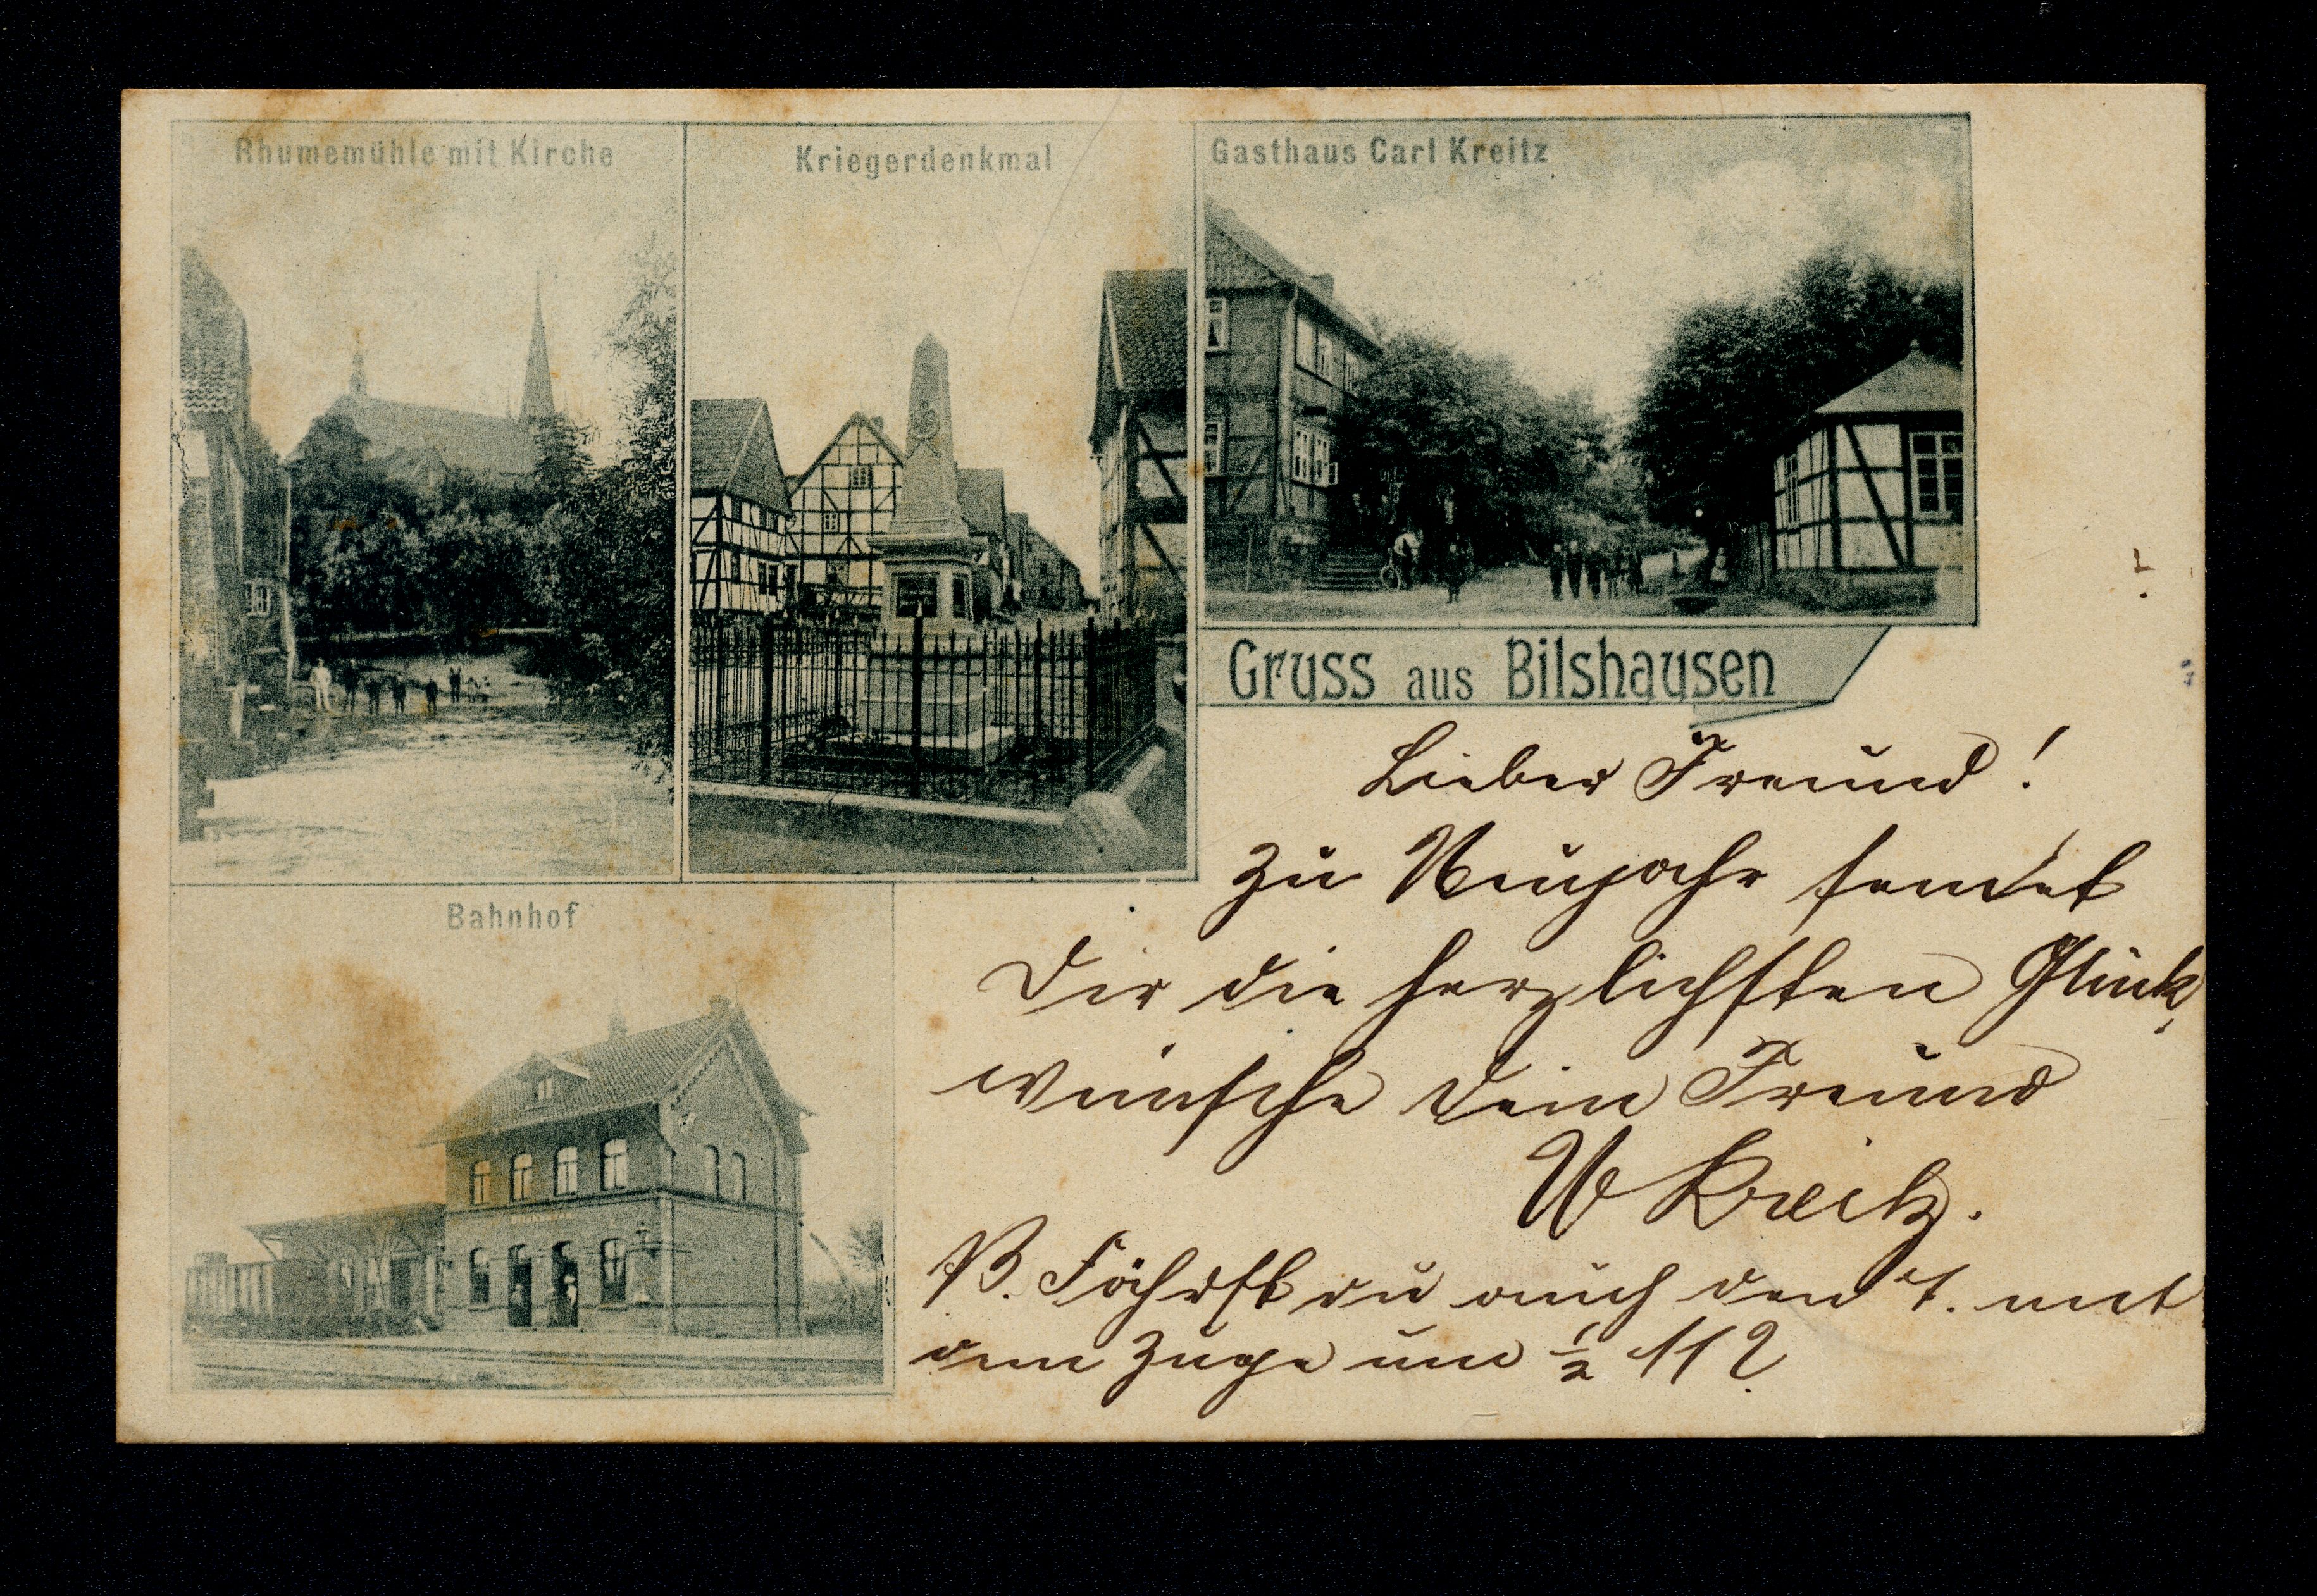 Rhumemühle mit Kirche
Kriegerdenkmal
Gasthaus Carl Kreitz
Gruss aus Bilshausen
Bahnhof
Lieber Freund!
Zu Neujahr sendet
Dir die herzlichsten Glück
wünsche Dein Freund
W Kreitz.
Fährst du auch den 4. mit
dem Zuge um ½ 11?